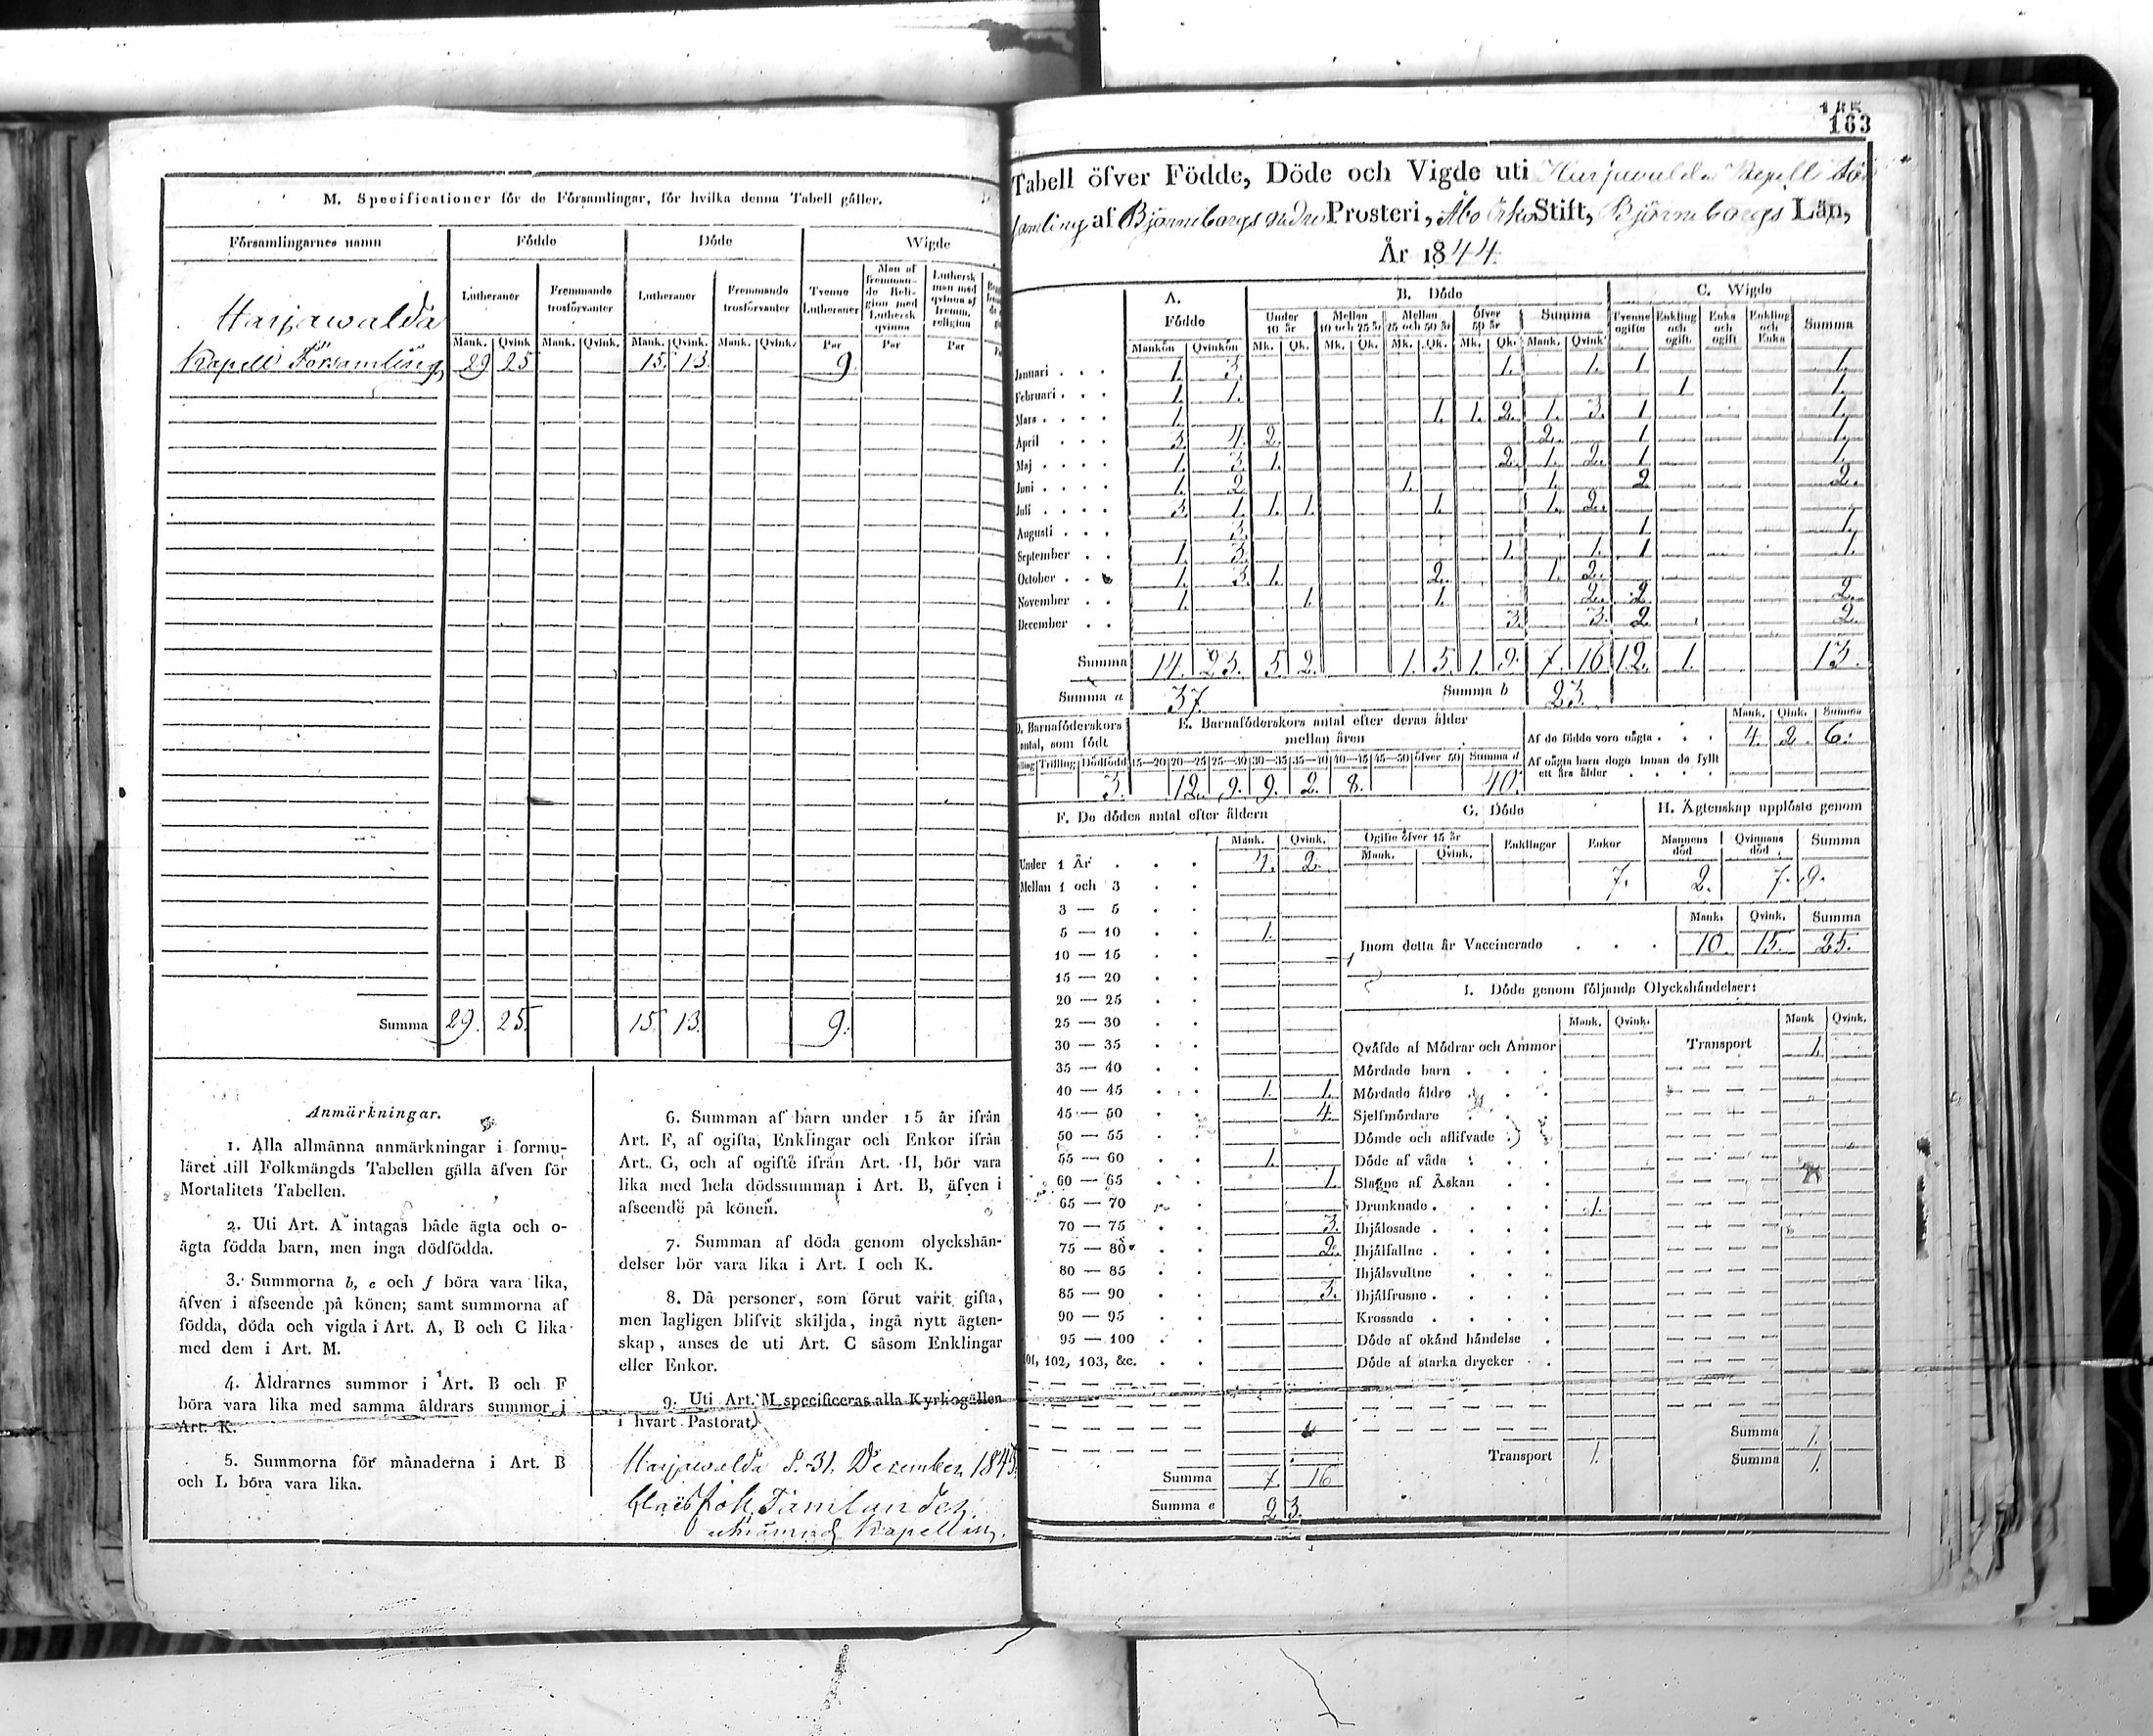 M. Specificationer för de Församlingar, för hvilka denna Tabell gäller.
Församlingarnes namn Födde Döde Wigde
Lutheraner Fremmande trosförvanter Lutheraner Fremmande trosförvanter Tvenne Lutheraner Man af fremmande Religion med Luthersk qvinna Luthersk man med qvinna af fremm. religion
Mank. Qvink Mank. Qvink. Mank. Qvink. Mank. Qvink. Par Par Par
Harjawalda
Kapell Församling 29 25 15. 13. 9.
Summa 29. 25. 15. 13. 9.
Anmärkningar.
1. Alla allmänna anmärkningar i formu-
läret till Folkmängds Tabellen gälla äfven för
Mortalitets Tabellen.
2. Uti Art. A intagas både ägta och o-
ägta födda barn, men inga dödfödda.
3. Summorna b, e och f böra vara lika,
äfven i afseende på könen; samt summorna af
födda, döda och vigda i Art. A, B och C lika
med dem i Art. M.
4. Åldrarnes summor i Art. B och F
böra vara lika med samma åldrars summor i
Art. K.
5. Summorna för månaderna i Art. B
och L böra vara lika.
6. Summan af barn under 15 år ifrån
Art. F, af ogifta, Enklingar och Enkor ifrån
Art. G, och af ogifte ifrån Art. H, bör vara
lika med hela dödssumman i Art. B, äfven i
afseende på könen.
7. Summan af döda genom olyckshän-
delser bör vara lika i Art. I och K.
8. Då personer, som förut varit gifta,
men lagligen blifvit skiljda, ingå nytt ägten-
skap, anses de uti Art. C såsom Enklingar
eller Enkor.
9. Uti Art. M specificeras alla Kyrkogällen
i hvart Pastorat.
Harjawalda d. 31. December 1845.
Kapellan.
163
Tabell öfver Födde, Döde och Vigde uti Harjawalda Kapell För
samling af Björneborgs Prosteri, Åbo Stift, Björneborgs Län,
År 1844.
A. Födde B. Döde C. Wigde
Under 10 år Mellan 10 och 25 år Mellan 25 och 50 år öfver 50 år Summa Tvenne ogifte Enkling och ogift. Enka och ogift Enkling och Enka Summa
Mankön Qvinkön Mk. Qk. Mk. Qk. Mk. Qk. Mk. Qk. Mank. Qvink
Januari . . . 1. 3. 1. 1. 1 1.
Februari . . . 1. 1. 1 1.
Mars . . . . 1. 1. 1. 2. 1. 3. 1 1.
April . . . 3. 4. 2. 2. 1 1.
Maj . . . . 1. 3. 1. 2. 1. 2. 1 1.
Juni . . . . 1. 2. 1. 1. 2 2.
Juli . . . . 3. 1. 1. 1. 1. 1. 2.
Augusti . . . 3. 1 1.
September . . 1. 3. 1. 1. 1 1.
October . . 1. 3. 1. 2. 1. 2.
November . . 1. 1. 1. 2. 2 2.
December . . 3. 3. 2 2.
Summa 14. 23. 5. 2. 1. 5. 1. 9. 7. 16 12. 1. 13.
Summa a 37. Summa b 23.
D. Barnaföderskors antal, som födt E. Barnaföderskors antal efter deras ålder mellan åren Mank. Qink. Summa
Trilling Dödfödd 15—20 20—25 25—30 30—35 35—40 40—45 45—50 öfver 50 Summa d
3. 12. 9. 9. 2. 8. 40.
Af de födde voro oägta . . . 4. 2. 6.
Af oägta barn dogo innan de fyllt ett års ålder . . . .
F. De dödes antal efter åldern
Mank. Qvink.
Under 1 År . . . 4. 2.
Mellan 1 och 3 . .
3 — 5 . .
5 — 10 . . 1.
10 — 15 . .
15 — 20 . .
20 — 25 . .
25 — 30 . .
30 — 35 . .
35 — 40 . .
40 — 45 . . 1. 1.
45 — 50 . . 4.
50 — 55 . .
55 — 60 . . 1.
60 — 65 . . 1.
65 — 70 . .
70 — 75 . . 3.
75 — 80 . . 2.
80 — 85 . .
85 — 90 . . 3.
90 — 95 . .
95 — 100 . .
102, 103, &c. . .
Summa 7. 16
Summa e 23.
G. Döde H. Ägtenskap upplöste genom
Ogifte öfver 15 år Enklingar Enkor Mannens död Qvinnans död Summa
Mank. Qvink.
7. 2. 7. 9.
Mank. Qvink. Summa
Inom detta år Vaccinerade . . . 10. 15. 25.
I. Döde genom följande Olyckshändelser:
Mank. Qvink. Mank Qvink.
Qväfde af Mödrar och Ammor Transport 1.
Mördade barn . . .
Mördade äldre . . .
Sjelfmördare . .
Dömde och aflifvade .
Döde af våda . . .
Slagne af Åskan . .
Drunknade . . . . 1.
Ihjälosade . . . .
Ihjälfallne . . . .
Ihjälsvultne . . .
Ihjälfrusne . . . .
Krossade . . . .
Döde af okänd händelse .
Döde af starka drycker . .
Summa 1.
Transport 1. Summa 1.